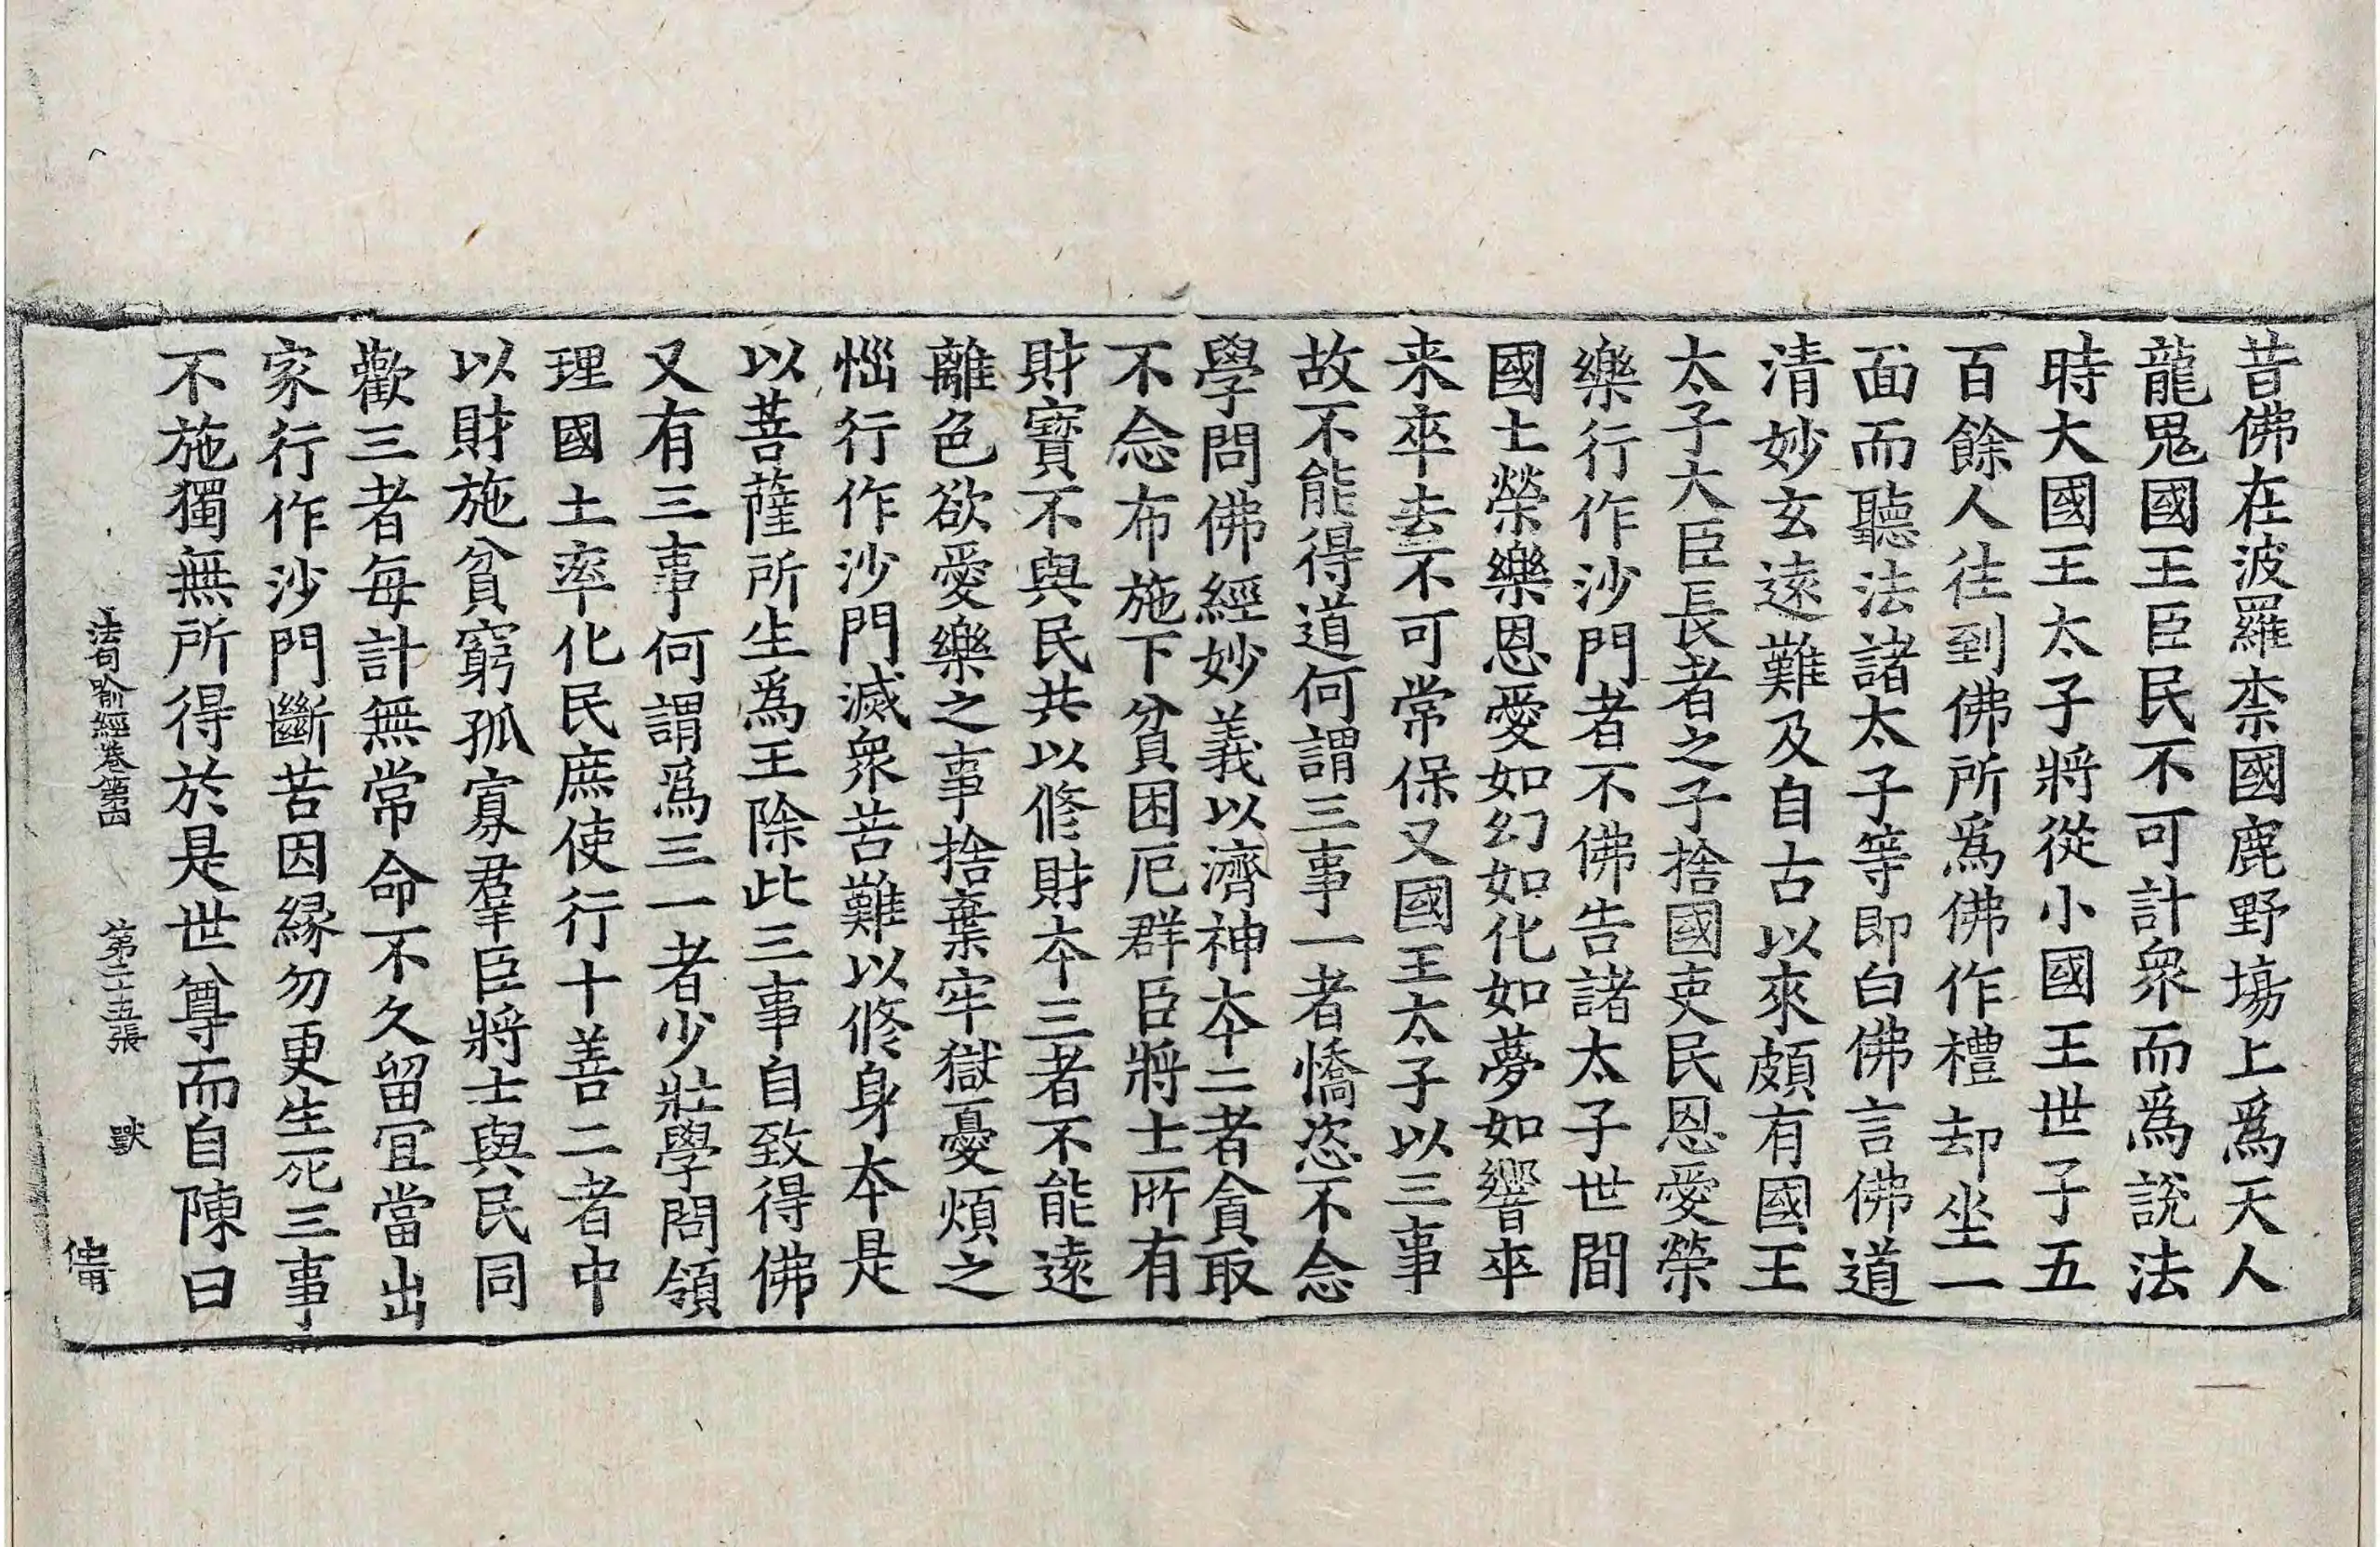 昔佛在波羅柰國鹿野塲上爲天人
龍鬼國王臣民不可計衆而爲說法
時大國王太子將從小國王世子五
百餘人往到佛所爲佛作禮却坐一
面而聽法諸太子等即白佛言佛道
清妙玄遠難及自古以來頗有國王
太子大臣長者之子捨國吏民恩愛榮
樂行作沙門者不佛告諸太子世間
國土榮樂恩愛如幻如化如夢如響卒
来卒去不可常保又國王太子以三事
故不能得道何謂三事一者憍恣不念
學問佛經妙義以濟神本二者貪取
不念布施下貧困厄群臣將士所有
財寶不與民共以修財本三者不能遠
離色欲愛樂之事捨棄牢獄憂煩之
惱行作沙門滅衆苦難以修身本是
以菩薩所生爲王除此三事自致得佛
又有三事何謂爲三一者少壯學問領
理國土率化民庶使行十善二者中
以財施貧窮孤寡羣臣將士與民同
歡三者每計無常命不久留宜當出
家行作沙門斷苦因緣勿更生死三事
不施獨無所得於是世尊而自陳曰
法句喻經卷第四 第二十五張 獸